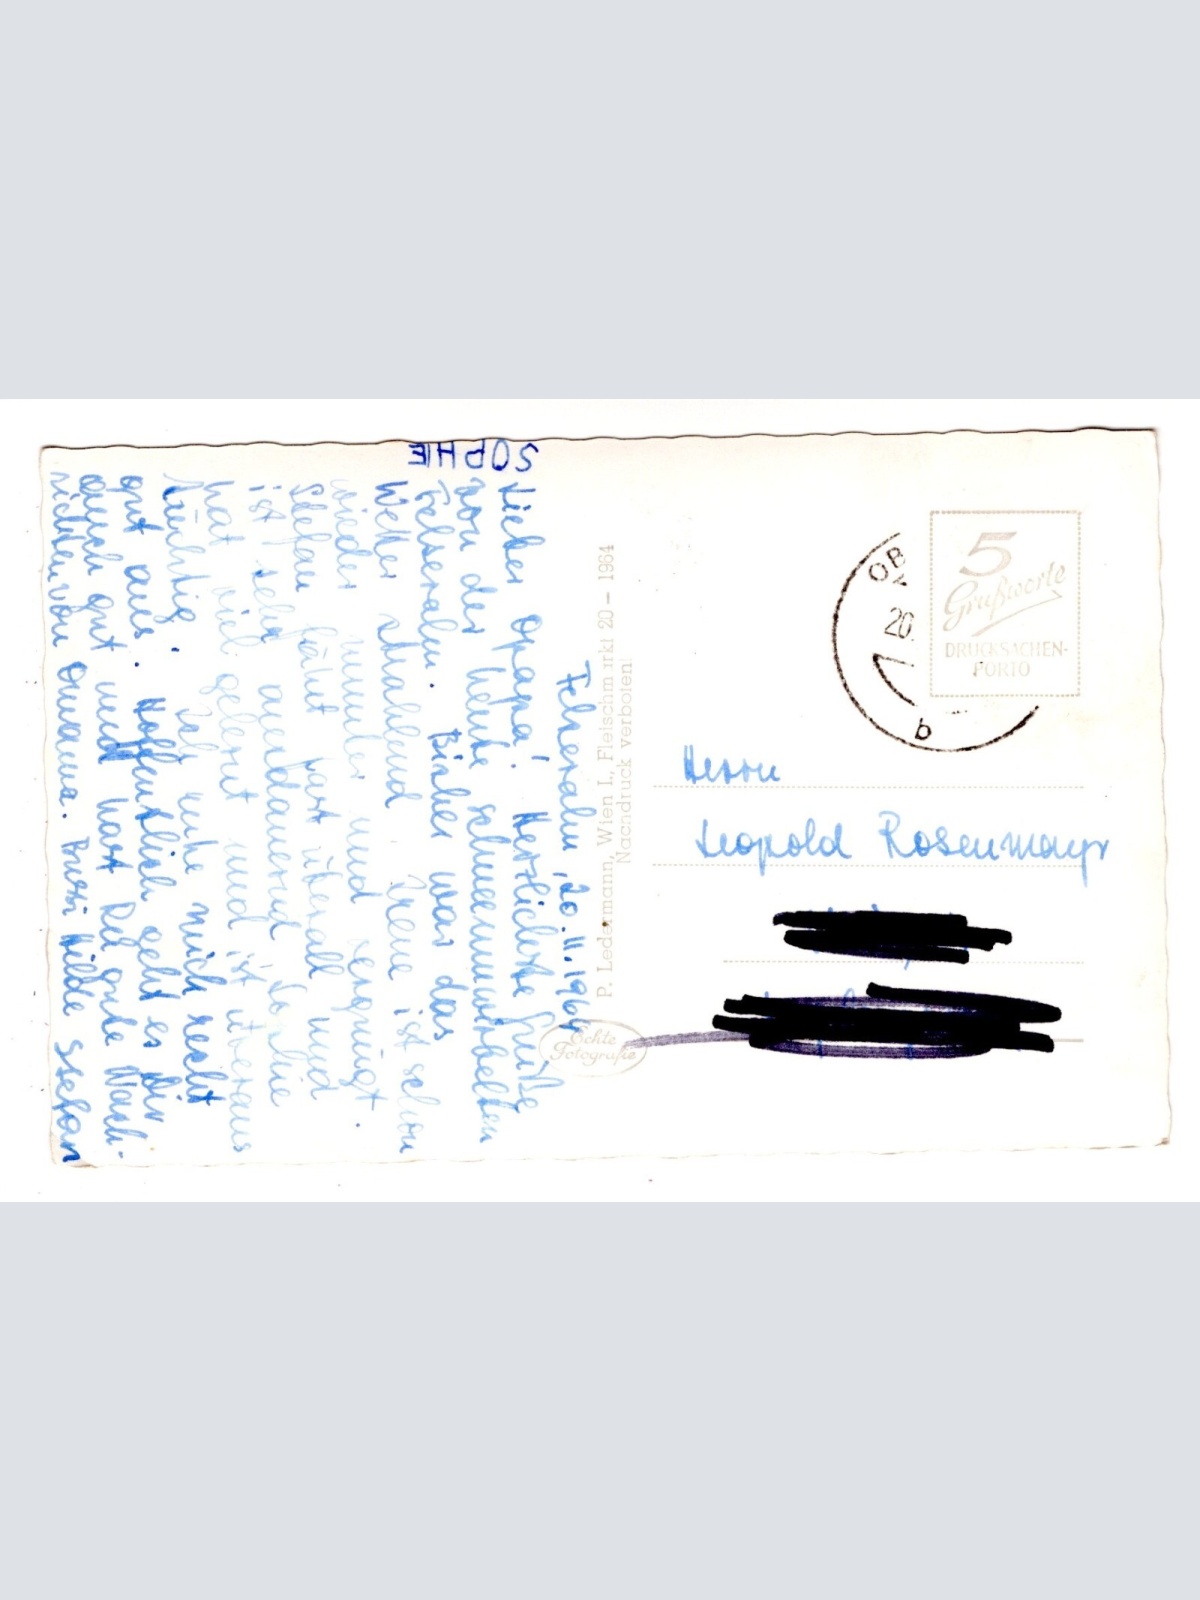 Felseralm, 20.11.1964
Lieber Opapa! Herzlichste Grüße
von der heute schneeumwirbelten
Felseralm. Bisher war das
Wetter strahlend. Irene ist schon
wieder munter und vergnügt.
Stefan fährt fast überall und
ist sehr ausdauernd. Sophie
hat viel gelernt und ist überaus
tüchtig. Ich ruhe mich recht
gut aus. Hoffentlich geht es Dir
auch gut und hast Du gute Nach-
richten von Omama. Bussi Hilde Stefan
SOPHIE
P. Ledermann, Wien I., Fleischmarkt 20 – 1964
Nachdruck verboten!
Echte
Fotografie
5
Grußworte
DRUCKSACHEN-
PORTO
OB
20.
b
Herrn
Leopold Rosenmayr